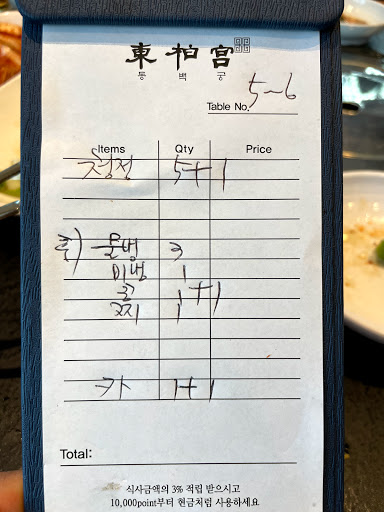 東柏宮
동백궁
Table No. 5~6
Items Qty Price
정 5+1
후) 물냉 3
비냉 1
공 1+1
찌 1
카 1+1
Total:
식사금액의 3% 적립 받으시고
10,000point부터 현금처럼 사용하세요